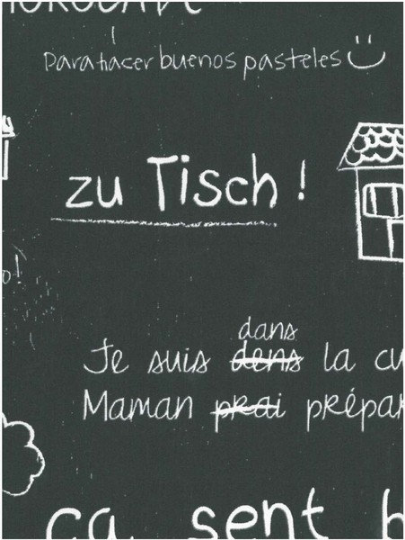 Para hacer buenos pasteles
zu Tisch !
o!
dans
Je suis dens la
Maman prai
ça sent